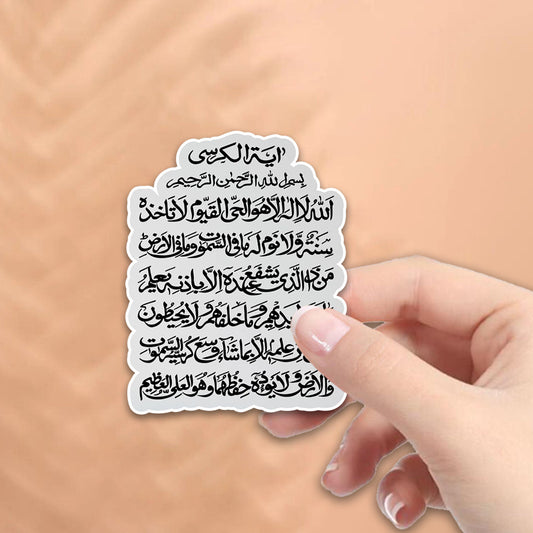 اية الكرسى
بسم الله الرَّحمٰن الرَّحيم
اَللهُ لا اِلٰهَ اِلا هُوَ الحَىُّ القَيّومُ لا تَاخذهُ
سِنَةٌ وَّلا نَومٌ لَه مَا فى السَّمٰوٰت وَمَا فى الاَرضِ
مَن ذَا الَّذى يَشفَعُ عِندَهُ اِلا بِاذنِهِ يَعلَمُ
اَيديهِم وَمَا خَلفَهُم وَلا يُحيطُونَ
مِّن عِلمِهِ اِلا بِمَا شَاءَ وَسِعَ كُرسِيُّهُ السَّمٰوٰت
وَالاَرضَ وَلا يَؤدُهُ حِفظُهُمَا وَهُوَ العَلىُّ العَظيمُ